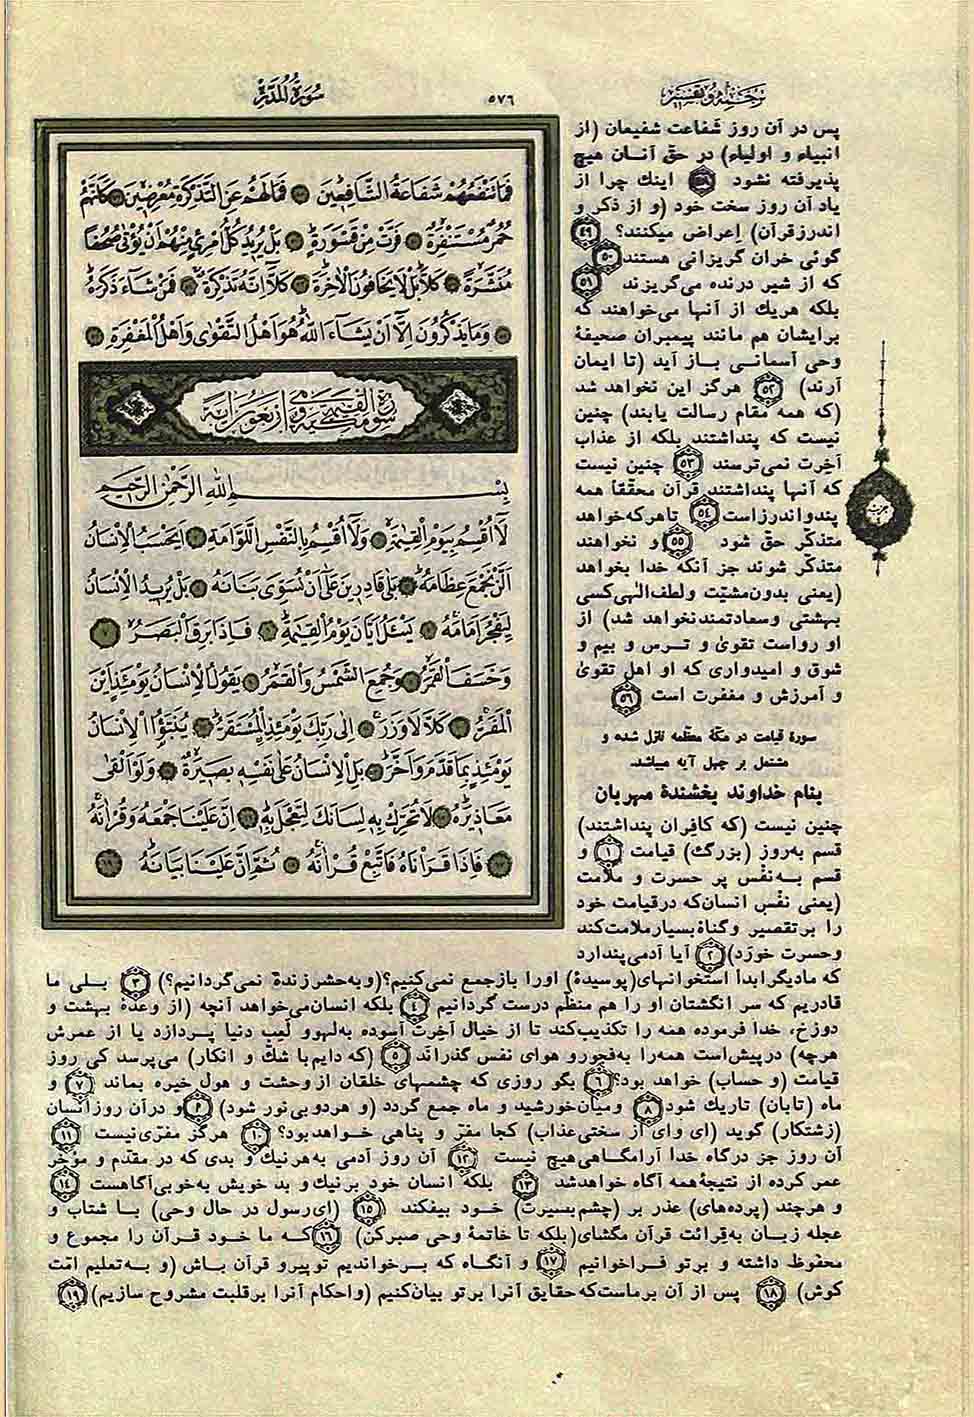 ترجمه و تفسیر
٥٧٦
سورة المدثر
فَمَا تَنْفَعُهُمْ شَفَاعَةُ الشَّافِعِينَ ۝ فَمَا لَهُمْ عَنِ التَّذْكِرَةِ مُعْرِضِينَ ۝ كَأَنَّهُمْ
حُمُرٌ مُسْتَنْفِرَةٌ ۝ فَرَّتْ مِنْ قَسْوَرَةٍ ۝ بَلْ يُرِيدُ كُلُّ امْرِئٍ مِنْهُمْ أَنْ يُؤْتَى صُحُفًا
مُنَشَّرَةً ۝ كَلَّا بَلْ لَا يَخَافُونَ الْآخِرَةَ ۝ كَلَّا إِنَّهُ تَذْكِرَةٌ ۝ فَمَنْ شَاءَ ذَكَرَهُ
۝ وَمَا يَذْكُرُونَ إِلَّا أَنْ يَشَاءَ اللَّهُ هُوَ أَهْلُ التَّقْوَى وَأَهْلُ الْمَغْفِرَةِ ۝
سورة القيمة مكية و هي اربعون اية
بِسْمِ اللَّهِ الرَّحْمَنِ الرَّحِيمِ
لَا أُقْسِمُ بِيَوْمِ الْقِيمَةِ ۝ وَلَا أُقْسِمُ بِالنَّفْسِ اللَّوَّامَةِ ۝ أَيَحْسَبُ الْإِنْسَانُ
أَلَّنْ نَجْمَعَ عِظَامَهُ ۝ بَلَى قَادِرِينَ عَلَى أَنْ نُسَوِّيَ بَنَانَهُ ۝ بَلْ يُرِيدُ الْإِنْسَانُ
لِيَفْجُرَ أَمَامَهُ ۝ يَسْئَلُ أَيَّانَ يَوْمُ الْقِيمَةِ ۝ فَإِذَا بَرِقَ الْبَصَرُ ۝
وَخَسَفَ الْقَمَرُ ۝ وَجُمِعَ الشَّمْسُ وَالْقَمَرُ ۝ يَقُولُ الْإِنْسَانُ يَوْمَئِذٍ أَيْنَ
الْمَفَرُّ ۝ كَلَّا لَا وَزَرَ ۝ إِلَى رَبِّكَ يَوْمَئِذٍ الْمُسْتَقَرُّ ۝ يُنَبَّؤُا الْإِنْسَانُ
يَوْمَئِذٍ بِمَا قَدَّمَ وَأَخَّرَ ۝ بَلِ الْإِنْسَانُ عَلَى نَفْسِهِ بَصِيرَةٌ ۝ وَلَوْ أَلْقَى
مَعَاذِيرَهُ ۝ لَا تُحَرِّكْ بِهِ لِسَانَكَ لِتَعْجَلَ بِهِ ۝ إِنَّ عَلَيْنَا جَمْعَهُ وَقُرْآنَهُ
۝ فَإِذَا قَرَأْنَاهُ فَاتَّبِعْ قُرْآنَهُ ۝ ثُمَّ إِنَّ عَلَيْنَا بَيَانَهُ ۝
پس در آن روز شفاعت شفیعان (از
انبیاء و اولیاء) در حقّ آنان هیچ
پذیرفته نشود ٤٨ اینك چرا از
یاد آن روز سخت خود (و از ذکر و
اندرز قرآن) اعراض میکنند؟ ٤٩
گوئی خران گریزانی هستند ٥٠
که از شیر درنده می‌گریزند ٥١
بلکه هریك از آنها می‌خواهند که
برایشان هم مانند پیمبران صحیفهٔ
وحی آسمانی باز آید (تا ایمان
آرند) ٥٢ هرگز این نخواهد شد
(که همه مقام رسالت یابند) چنین
نیست که پنداشتند بلکه از عذاب
آخِرت نمی‌ترسند ٥٣ چنین نیست
که آنها پنداشتند قرآن محققاً همه
پند و اندرز است ٥٤ تا هرکه خواهد
متذکّر حق شود ٥٥ و نخواهند
متذکّر شوند جز آنکه خدا بخواهد
(یعنی بدون مشیّت و لطف الٰهی کسی
بهشتی و سعادتمند نخواهد شد) از
او رواست تقویٰ و ترس و بیم و
شوق و امیدواری که او اهل تقویٰ
و آمرزش و مغفرت است ٥٦
سورهٔ قیامت در مکّه معظّمه نازل شده و
مشتمل بر چهل آیه میباشد.
بنام خداوند بخشندهٔ مهربان
چنین نیست (که کافران پنداشتند)
قسم به‌روز (بزرگ) قیامت ١ و
قسم به‌نفْس پر حسرت و ملامت
(یعنی نفْس انسان که در قیامت خود
را بر تقصیر و گناه بسیار ملامت کند
و حسرت خورد) ٢ آیا آدمی پندارد
که ما دیگر ابدا استخوانهای (پوسیدهٔ) او را باز جمع نمی‌کنیم؟ (و به حشر زنده نمی‌گردانیم؟) ٣ بلی ما
قادریم که سر انگشتان او را هم منظّم درست گردانیم ٤ بلکه انسان می‌خواهد آنچه (از وعدهٔ بهشت و
دوزخ، خدا فرموده همه را تکذیب کند تا از خیال آخِرت آسوده به‌لهو و لَعِب دنیا پردازد یا از عمرش
هرچه) در پیش است همه را به‌فجور و هوای نفس گذراند ٥ (که دایم با شك و انکار) می‌پرسد کی روز
قیامت (و حساب) خواهد بود؟ ٦ بگو روزی که چشمهای خلقان از وحشت و هول خیره بماند ٧ و
ماه (تابان) تاریك شود ٨ و میان خورشید و ماه جمع گردد (و هر دو بی‌نور شود) ٩ و در آن روز انسان
(زشتکار) گوید (ای وای از سختی عذاب) کجا مفرّ و پناهی خواهد بود؟ ١٠ هرگز مفرّی نیست ١١
آن روز جز درگاه خدا آرامگاهی هیچ نیست ١٢ آن روز آدمی به‌هر نیك و بدی که در مقدّم و مؤخّر
عمر کرده از نتیجهٔ همه آگاه خواهد شد ١٣ بلکه انسان خود بر نیك و بد خویش به‌خوبی آگاهست ١٤
و هرچند (پرده‌های) عذر بر (چشم بصیرت) خود بیفکند ١٥ (ای رسول در حال وحی) با شتاب و
عجله زبان به‌قرائت قرآن مگشای (بلکه تا خاتمهٔ وحی صبر کن) ١٦ که ما خود قرآن را مجموع و
محفوظ داشته و بر تو فراخوانیم ١٧ و آنگاه که برخواندیم تو پیرو قرآن باش (و به‌تعلیم امّت
کوش) ١٨ پس از آن بر ماست که حقایق آنرا بر تو بیان کنیم (و احکام آنرا بر قلبت مشروح سازیم) ١٩